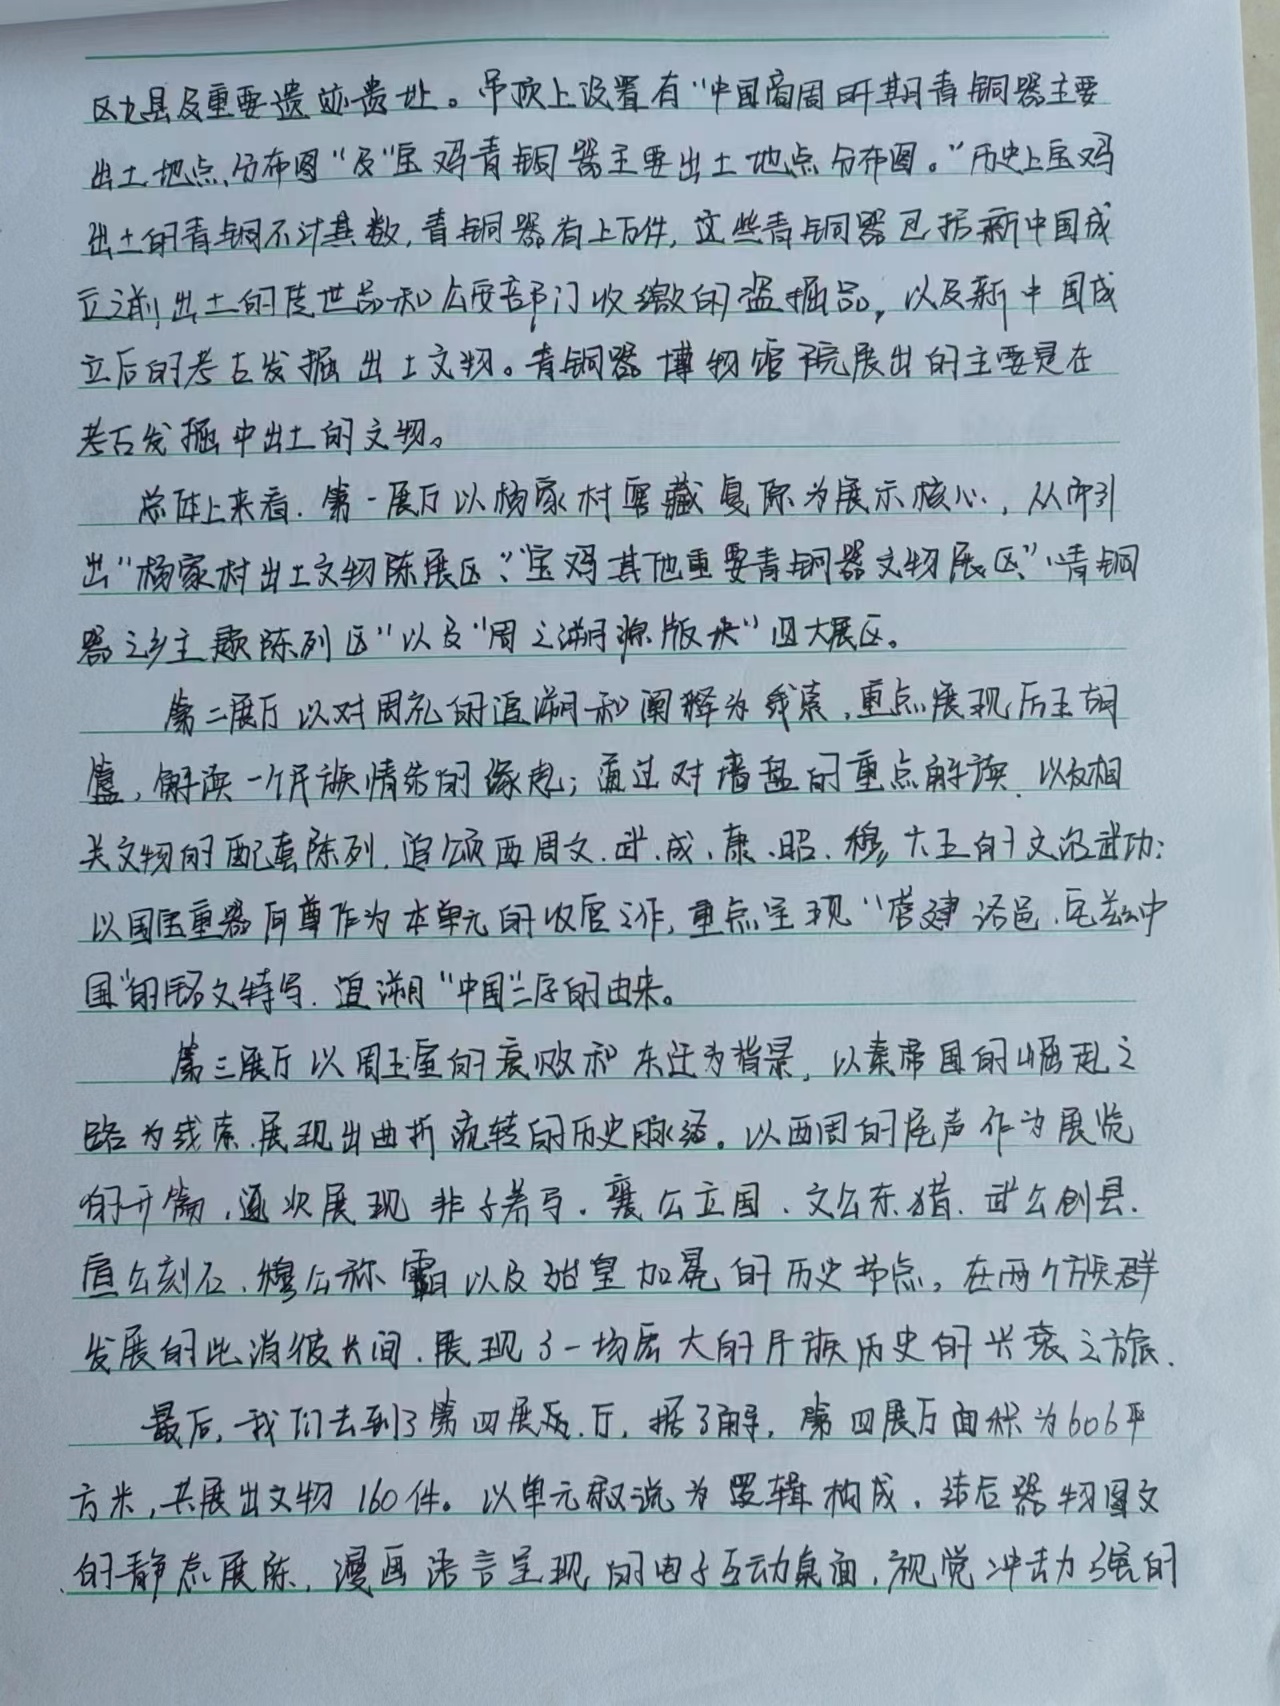 区九县及重要遗迹遗址。吊顶上设置有“中国商周时期青铜器主要
出土地点分布图“及“宝鸡青铜器主要出土地点分布图。”历史上宝鸡
出土的青铜不计其数,青铜器有上万件,这些青铜器包括新中国成
立之前出土的传世品和公安部门收缴的盗掘品,以及新中国成
立后的考古发掘出土文物。青铜器博物馆院展出的主要是在
考古发掘中出土的文物。
总体上来看.第一展厅以杨家村窖藏复原为展示核心,从中引
出“杨家村出土文物陈展区”、“宝鸡其他重要青铜器文物展区”、“青铜
器之乡主题陈列区”以及“周之溯源版块”四大展区。
第二展厅以对周礼的追溯和阐释为线索,重点展现厉王胡
簋,解读一个民族情结的缘起;通过对墙盘的重点解读.以及相
关文物的配套陈列.追颂西周文.武.成、康、昭.穆六王的文治武功;
以国宝重器何尊作为本单元的收官之作,重点呈现“营建洛邑.宅兹中
国”的铭文特写.追溯“中国”二字的由来。
第三展厅以周王室的衰败和东迁为背景,以秦帝国的崛起之
路为线索.展现出曲折流转的历史脉络。以西周的尾声作为展览
的开篇,逐次展现非子养马.襄公立国、文公东猎.武公创县.
宣公刻石、穆公称霸以及始皇加冕的历史节点。在两个族群
发展的此消彼长间.展现了一场宏大的民族历史的兴衰之旅.
最后,我们去到了第四展厅,据了解,第四展厅面积为606平
方米,共展出文物160件。以单元叙说为逻辑构成,结合器物图文
的静态展陈,漫画语言呈现的电子互动桌面,视觉冲击力强的